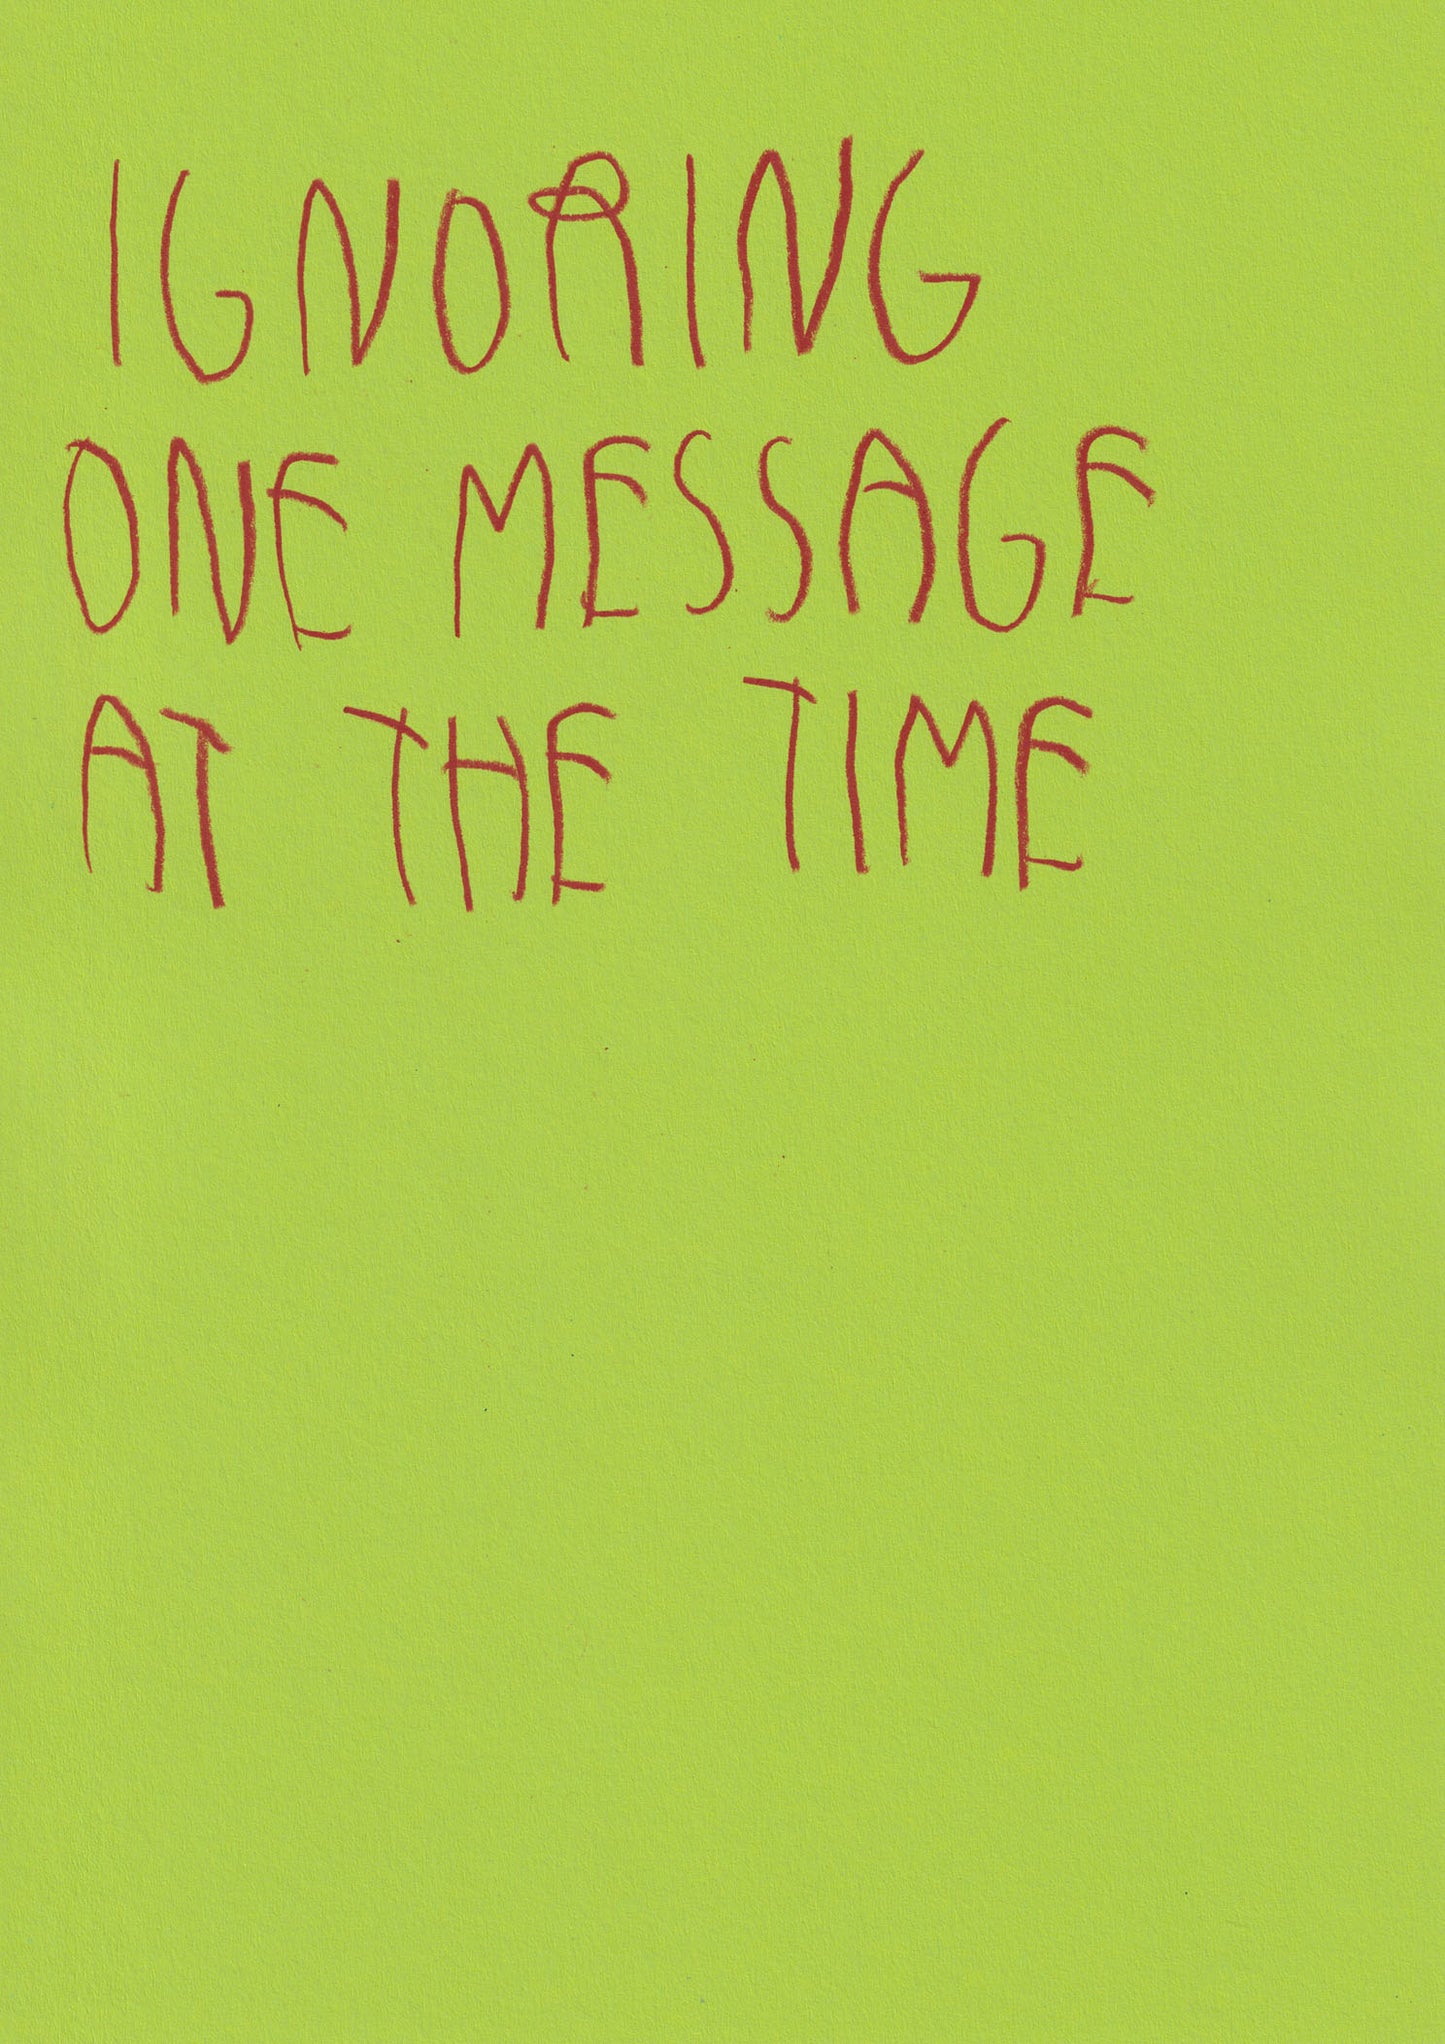 IGNORING
ONE MESSAGE
AT THE TIME